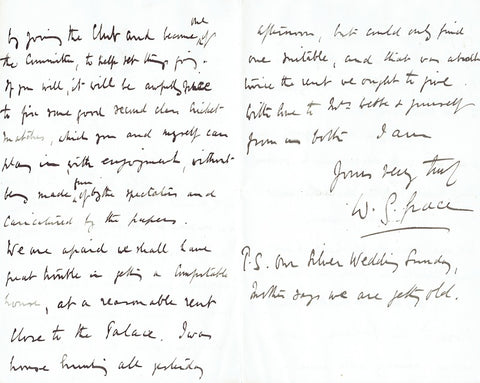 by joining the Club and become one of
the Committee, to help set things going.
If you will, it will be awfully nice
to fix some good second class Cricket
Matches, which you and myself can
play in, with enjoyment, without
being made fun of by the spectators and
caricatured by the papers.
We are afraid we shall have
great trouble in getting a comfortable
house, at a reasonable rent
close to the Palace. I was
house hunting all yesterday
afternoon, but could only find
one suitable, and that was about
twice the rent we ought to give.
With love to Mrs & yourself
from us both I am
Yours very truly
W. G. Grace
P.S. Our Silver Wedding Sunday,
Mother says we are getting old.